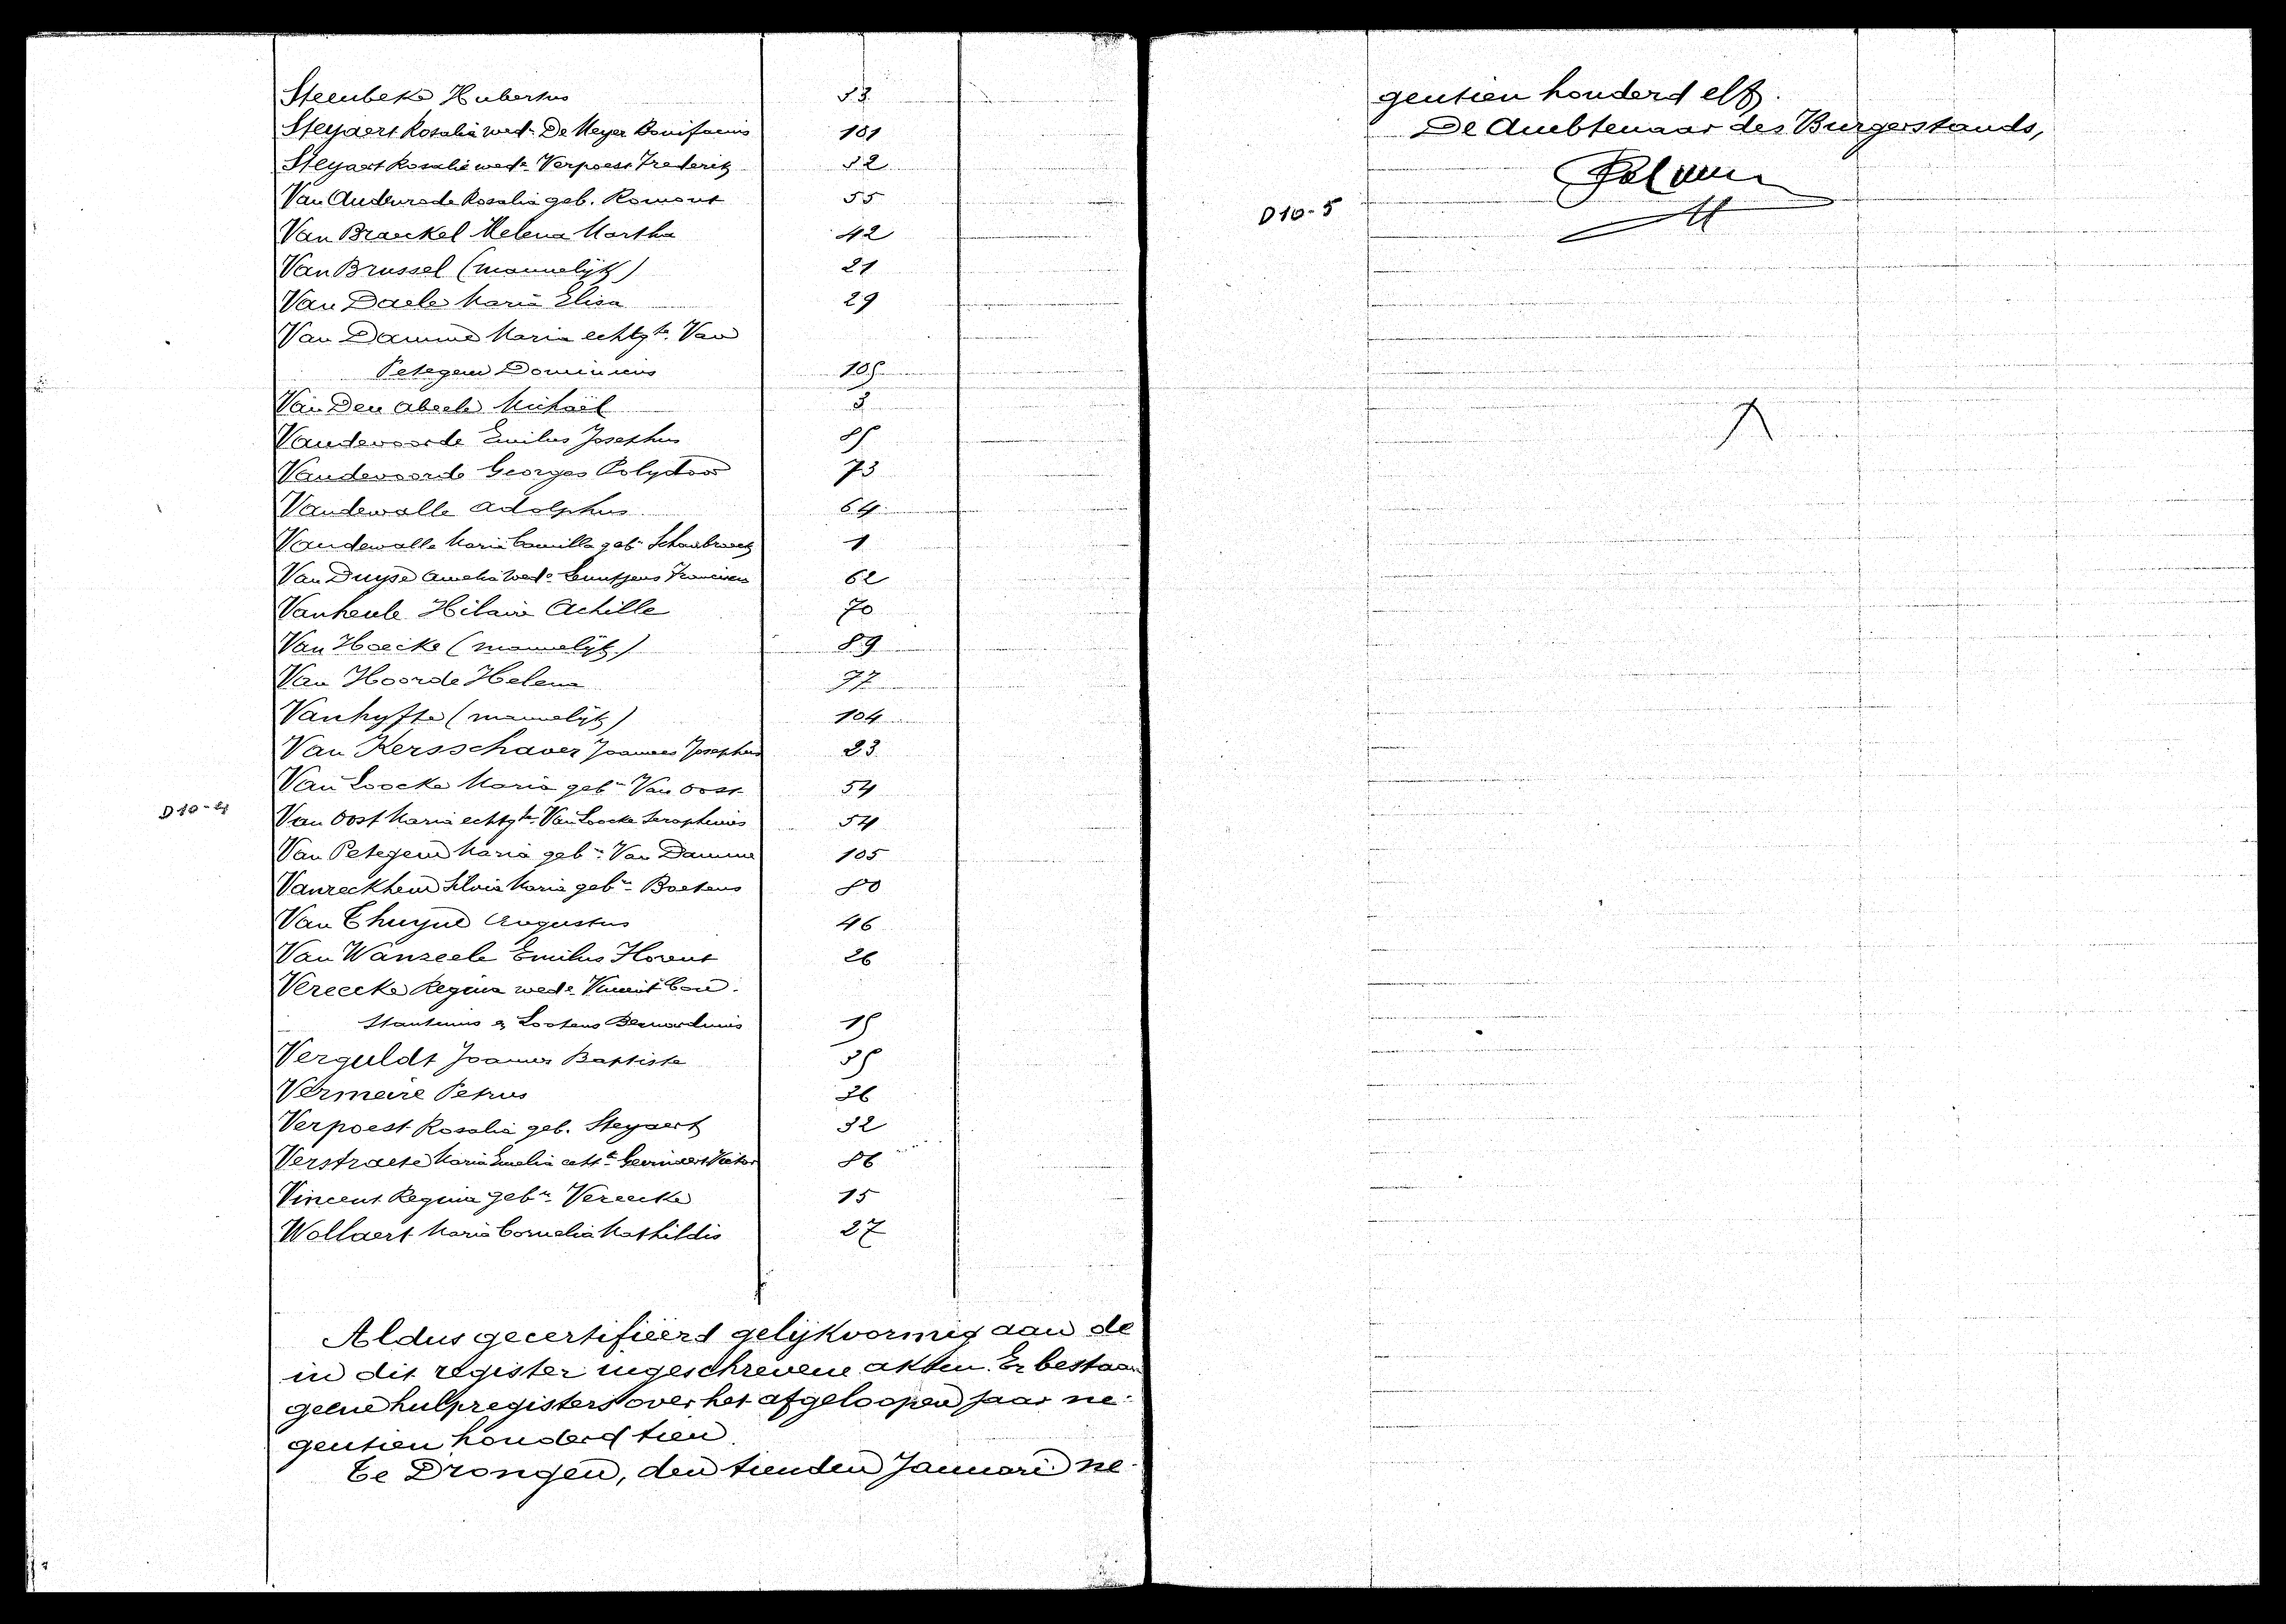 Steenbeke Hubertus 33
Steyaert Rosalia wede De Meyer Bonifacius 101
Steyaert Rosalia wede Verpoest Frederik 32
Van Audenrode Rosalia geb. Romont 55
Van Braeckel Helena Martha 42
Van Brussel (mannelijk) 21
Van Daele Maria Elisa 29
Van Damme Maria echtgte Van
Petegem Dominicus 105
Van Den Abeele Michaël 3
Vandevoorde Emilus Josephus 85
Vandevoorde Georges Polydoor 73
Vandewalle Adolphus 64
Vandewalle Maria Camilla gebn Schaubroeck 1
Van Duyse Amelia wede Franciscus 62
Vanheule Hilaire Achille 70
Van Hoecke (mannelijk) 89
Van Hoorde Helena 77
Vanhyfte (mannelijk) 104
Van Kersschaver Joannes Josephus 23
Van Loocke Maria gebn Van Oost 54
D10-4
Van Oost Maria echtgte Van Loocke Seraphinus 54
Van Petegem Maria gebn Van Damme 105
Vanreckhem Silvia Maria gebn Boetens 80
Van Thuyne Augustus 46
Van Wanzeele Emilus Florent 26
Vereecke Regina wede Vincent Con-
stantinus & Lootens Bernardinus 15
Verguldt Joannes Baptiste 35
Vermeire Petrus 36
Verpoest Rosalia geb. Steyaert 32
Verstraete Maria Emelia echte Victor 86
Vincent Regina gebn Vereecke 15
Wollaert Maria Cornelia Mathildis 27
Aldus gecertifiëerd gelijkvormig aan de
in dit register ingeschrevene akten. Er bestaan
geene hulpregisters over het afgeloopen jaar ne-
gentien honderd tien.
Te Drongen, den tienden Januari ne-
gentien honderd elf.
De Ambtenaar des Burgerstands,
D10-5